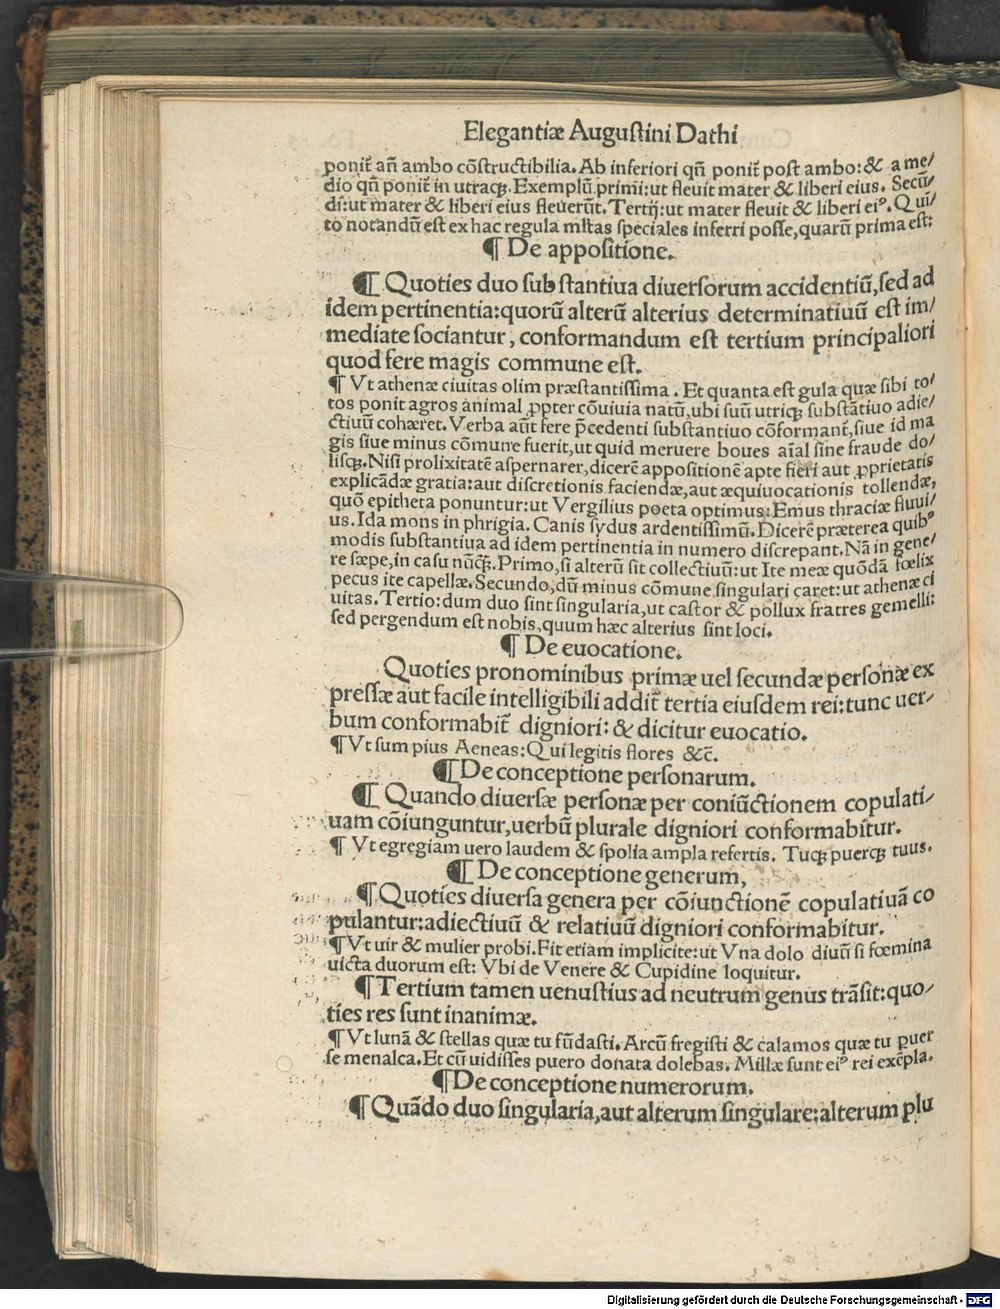 Elegantiæ Augustini Dathi
ponit̃ añ ambo cõstructibilia. Ab inferiori qñ ponit̃ post ambo: & a me/
dio qñ ponit̃ in utracꝫ. Exemplũ primi: ut fleuit mater & liberi eius. Secũ/
di: ut mater & liberi eius fleuerũt. Tertij: ut mater fleuit & liberi eiꝰ. Qui/
to notandũ est ex hac regula ml̃tas speciales inferri posse, quarũ prima est:
¶ De appositione.
¶ Quoties duo substantiua diuersorum accidentiũ, sed ad
idem pertinentia: quorũ alterũ alterius determinatiuũ est im/
mediate sociantur, conformandum est tertium principaliori
quod fere magis commune est.
¶ Vt athenæ ciuitas olim præstantissima. Et quanta est gula quæ sibi to/
tos ponit agros animal ꝓpter cõuiuia natũ, ubi suũ utriqꝫ substãtiuo adie/
ctiuũ cohæret. Verba aũt fere p̃cedenti substantiuo cõformant̃, siue id ma
gis siue minus cõmune fuerit, ut quid meruere boues aĩal sine fraude do/
lisqꝫ. Nisi prolixitatẽ aspernarer, dicerẽ appositionẽ apte fieri aut ꝓprietatis
explicãdæ gratia: aut discretionis faciendæ, aut æquiuocationis tollendæ,
quõ epitheta ponuntur: ut Vergilius poeta optimus: Emus thraciæ fluui/
us. Ida mons in phrigia. Canis sydus ardentissimũ. Dicerẽ præterea quibꝰ
modis substantiua ad idem pertinentia in numero discrepant. Nã in gene/
re sæpe, in casu nũqꝫ. Primo, si alterũ sit collectiuũ: ut Ite meæ quõdã fœlix
pecus ite capellæ. Secundo, dũ minus cõmune singulari caret: ut athenæ ci
uitas. Tertio: dum duo sint singularia, ut castor & pollux fratres gemelli:
sed pergendum est nobis, quum hæc alterius sint loci.
¶ De euocatione.
Quoties pronominibus primæ uel secundæ personæ ex
pressæ aut facile intelligibili addit̃ tertia eiusdem rei: tunc uer/
bum conformabit̃ digniori: & dicitur euocatio.
¶ Vt sum pius Aeneas: Qui legitis flores &c̃.
¶ De conceptione personarum.
¶ Quando diuersæ personæ per coniũctionem copulati/
uam cõiunguntur, uerbũ plurale digniori conformabitur.
¶ Vt egregiam uero laudem & spolia ampla refertis. Tuqꝫ puerqꝫ tuus.
¶ De conceptione generum,
¶ Quoties diuersa genera per cõiunctionẽ copulatiuã co
pulantur: adiectiuũ & relatiuũ digniori conformabitur.
¶ Vt uir & mulier probi. Fit etiam implicite: ut Vna dolo diuũ si fœmina
uicta duorum est: Vbi de Venere & Cupidine loquitur.
¶ Tertium tamen uenustius ad neutrum genus trãsit: quo/
ties res sunt inanimæ.
¶ Vt lunã & stellas quæ tu fũdasti. Arcũ fregisti & calamos quæ tu ꝑuer
se menalca. Et cũ uidisses puero donata dolebas. Millæ sunt eiꝰ rei exẽpla.
¶ De conceptione numerorum.
¶ Quãdo duo singularia, aut alterum singulare: alterum plu
Digitalisierung gefördert durch die Deutsche Forschungsgemeinschaft - DFG